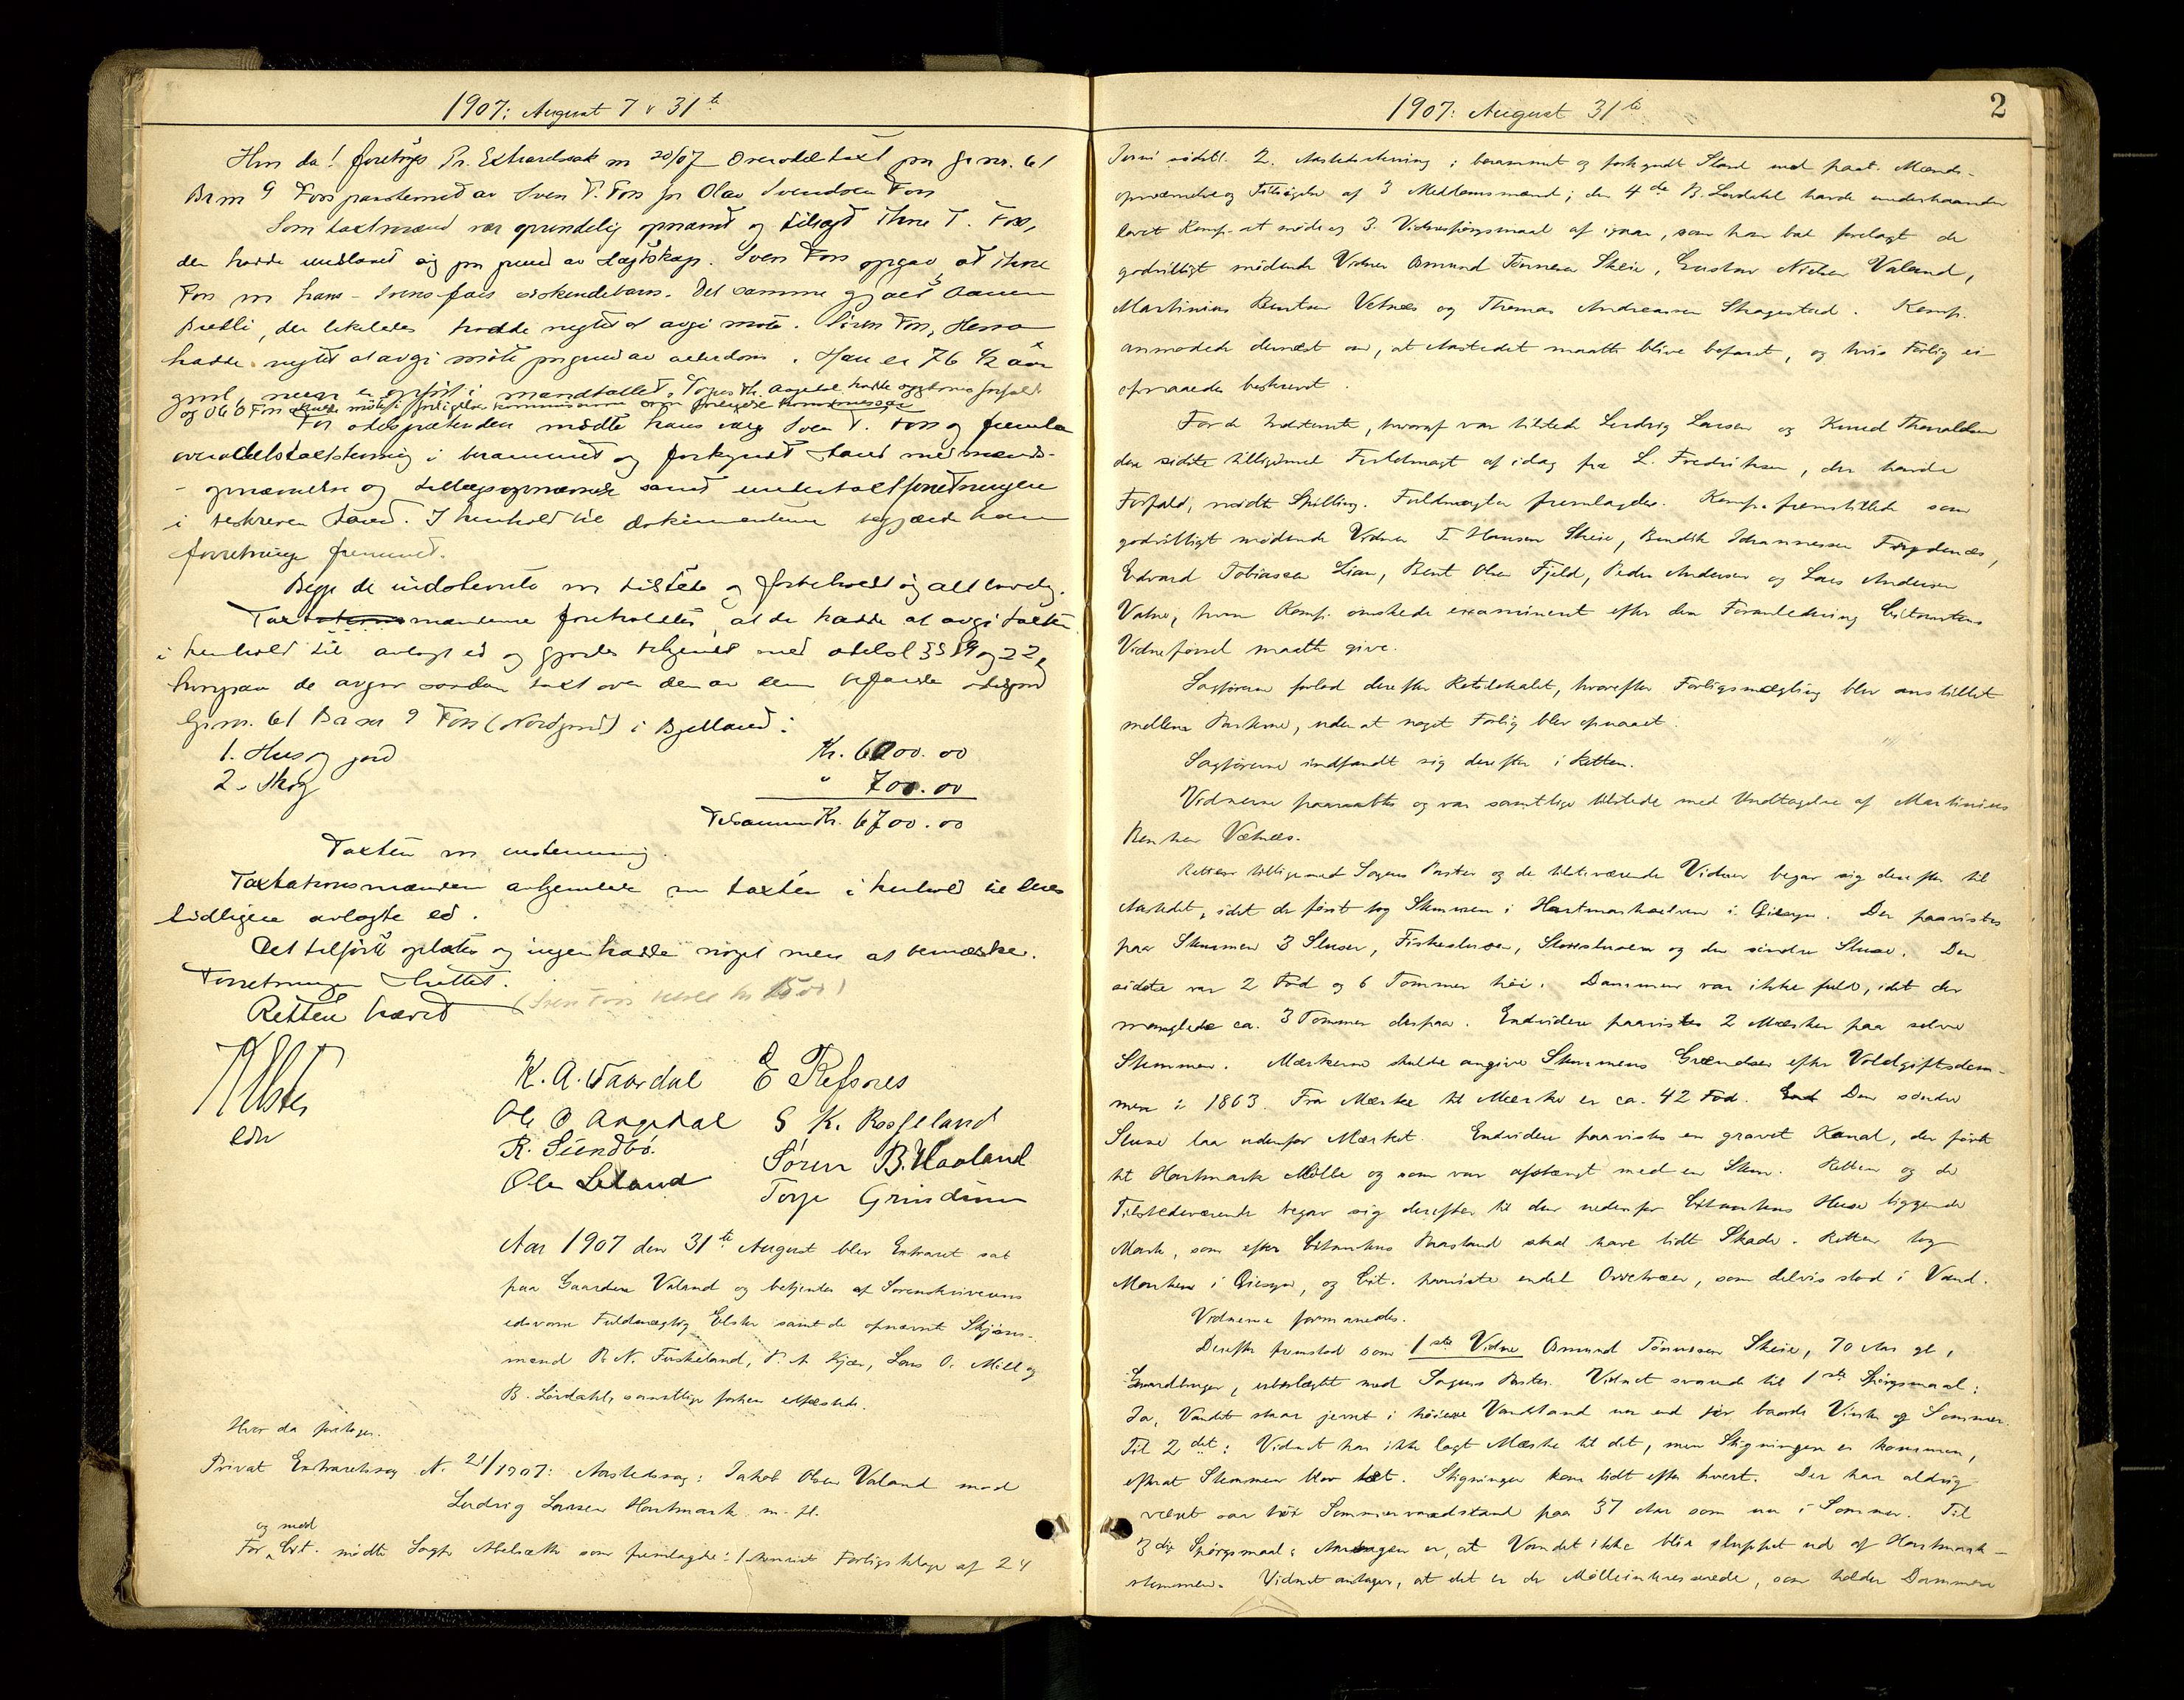 1907: August 7 & 31te
Hvor da! foretoges Pr. Extraretssak nr 20/07 Overodelstaxt paa grnr. 61
Brnr 9 Foss paastevnet av Sven T. Foss for Olav Svendsen Foss
Som taxtmænd var oprindelig opnævnt og tilsagt T. Foss,
der hadde undslaaet sig paa grund av slegtskap. Sven Foss opgav, at
Foss var hans - Svens fars søskendebarn. Det samme gjaldt
der likeledes hadde negtet at avgi møte. Søren Foss,
hadde negtet at avgi møte paa grund av alderdom. Han er 76 1/2 aar
gml, men er opført i mandtallet. Ougedal hadde forfald
og Ole O Foss møte i forligelses kommissionen
For odelspretendenten mødte hans verge Sven T. Foss og fremla
overodelstaxtstevning i berammet og forkyndt stand med mænds-
- opnævnelse og tillægsopnævnelse samt undertaxtforretningen
i beskreven stand. I henhold til dokumenterne begjærte han
forretningen fremmet.
Begge de indstevnte var tilstede og forbeholdt sig alt lovlig.
Taxtmændene foreholdtes, at de hadde at avgi taxten
i henhold til avlagt ed og gjordes bekjendt med odelsl §§ 19 og 22,
hvorpaa de avgav saadan taxt over den av dem befarede odelsjord
Grnr. 61 Brnr 9 Foss (Nordgard) i Bjelland:
1. Hus og jord Kr. 6000.00
2. Skog " 700.00
Tilsammen Kr. 6700.00
Taxten var enstemmig.
Taxtationsmændene avhjemlede nu taxten i henhold til deres
tidligere avlagte ed.
Det tilførte oplæstes og ingen hadde noget mere at bemærke.
Forretningen sluttet.
(Sven Foss betalt kr 15.00)
Retten hævet
Elster
edsv
K. A. Vaardal E Refsnes
Ole O Aagedal S K. Rosseland
R. Sundbø. Søren B. Haaland
Ole Leland Torje Grindem
Aar 1907 den 31te August blev Extraret sat
paa Gaarden Valand og betjentes af Sorenskriverens
edsvorne Fuldmægtig Elster samt de opnævnte Skjøns-
mænd P. N. Fuskeland, P. A Kjær, Lars O. Møll og
B. Lindahl, samtlige forhen edfæstede.
Hvor da foretoges.
Privat Extraretssag N. 21/1907: Aastedssag: Jakob Olsen Valand mod
Ludvig Larsen Hartmark m. fl.
og med
For Cit. mødte Sagf. Abelsæth som fremlagde: 1. Forligsklage af 24
1907: August 31te
2
Juni sidstl. 2. Aastedsstevning i berammet og forkyndt Stand med paat. Mænds-
opnævnelse og Tilsigelse af 3 Meddomsmænd; den 4de B. Lindahl havde underhaanden
lovet Komp. at møde og 3. Vidnespørgsmaal af igaar, som han bad forelagt de
godvilligt mødende Vidner Osmund Tønnesen Skeie, Gustav Nielsen Valand,
Martinius Bentsen Vetnes og Thomas Andreassen Skagestad. Komp.
anmodede dernæst om, at Aastedet maatte blive befaret, og hvis Forlig ei
opnaaedes beskrevet.
For de Indstevnte, hvoraf var tilstede Ludvig Larsen og Knud Thoraldsen
den sidste tilligemed Fuldmagt af idag fra L. Fredriksen, der havde
Forfald, mødte Spilling. Fuldmagten fremlagdes. Komp. fremstillede som
godvilligt mødende Vidner T. Hansen Skeie, Bendik Johannessen Frydenæs,
Edvard Tobiassen Lian, Bent Olsen Fjeld, Peder Andersen og Lars Andersen
Valand, hvem Komp. ønskede examineret efter den Foranledning Citantens
Vidneførsel maatte give.
Sagførerne forlod derefter Retslokalet, hvorefter Forligsmægling blev anstillet
mellem Parterne, uden at noget Forlig blev opnaaet.
Sagførerne indfandt sig derefter i Retten.
Vidnerne paaraabtes og var samtlige tilstede med Undtagelse af Martinius
Bentsen Vætnæs.
Retten tilligemed Sagens Parter og de tilstedeværende Vidner begav sig derefter til
Aastedet, idet de først tog Stemmen i Hartmarkselven i Øiesyn. Der paavistes
paa Stemmen 3 Sluser, Fiskeslusen, Storeslusen og den søndre Sluse. Den
sidste var 2 Fod og 6 Tommer høi. Dammen var ikke fuld, idet der
manglede ca. 3 Tommer derpaa. Endvidere paavistes 2 Mærker paa selve
Stemmen. Mærkerne skulde angive Stemmens Grændser efter Voldgiftsdom-
men i 1863. Fra Mærke til Mærke er ca. 42 Fod. Den søndre
Sluse laa udenfor Mærket. Endvidere paavistes en gravet Kanal, der førte
til Hartmark Mølle og som var afstængt med en Stem. Retten og de
Tilstedeværende begav sig derefter til den nedenfor Citantens Huse liggende
Mark, som efter Citantens Paastand skal have lidt Skade. Retten tog
Marken i Øiesyn, og Cit. paaviste endel Oretræer, som delvis stod i Vand.
Vidnerne formanedes.
Derefter fremstod som 1ste Vidne Osmund Tønnessen Skeie, 70 Aar gl,
Gaardbruger, ubeslægtet med Sagens Parter. Vidnet svarede til 1ste Spørgsmaal:
Ja, Vandet staar jevnt i høiere Vandstand nu end før baade Vinter og Sommer.
Til 2det: Vidnet har ikke lagt Mærke til det, men Stigningen er kommen,
efterat Stemmen blev tæt. Stigningen kom lidt efter hvert. Der har aldrig
været saa høi Sommervandstand paa 37 Aar som nu i Sommer. Til
3die Spørgsmaal: Aarsagen er, at Vandet ikke blir sluppet ud af Hartmark-
stemmen. Vidnet antager, at det er de Mølleinteresserede, som holder Dammen